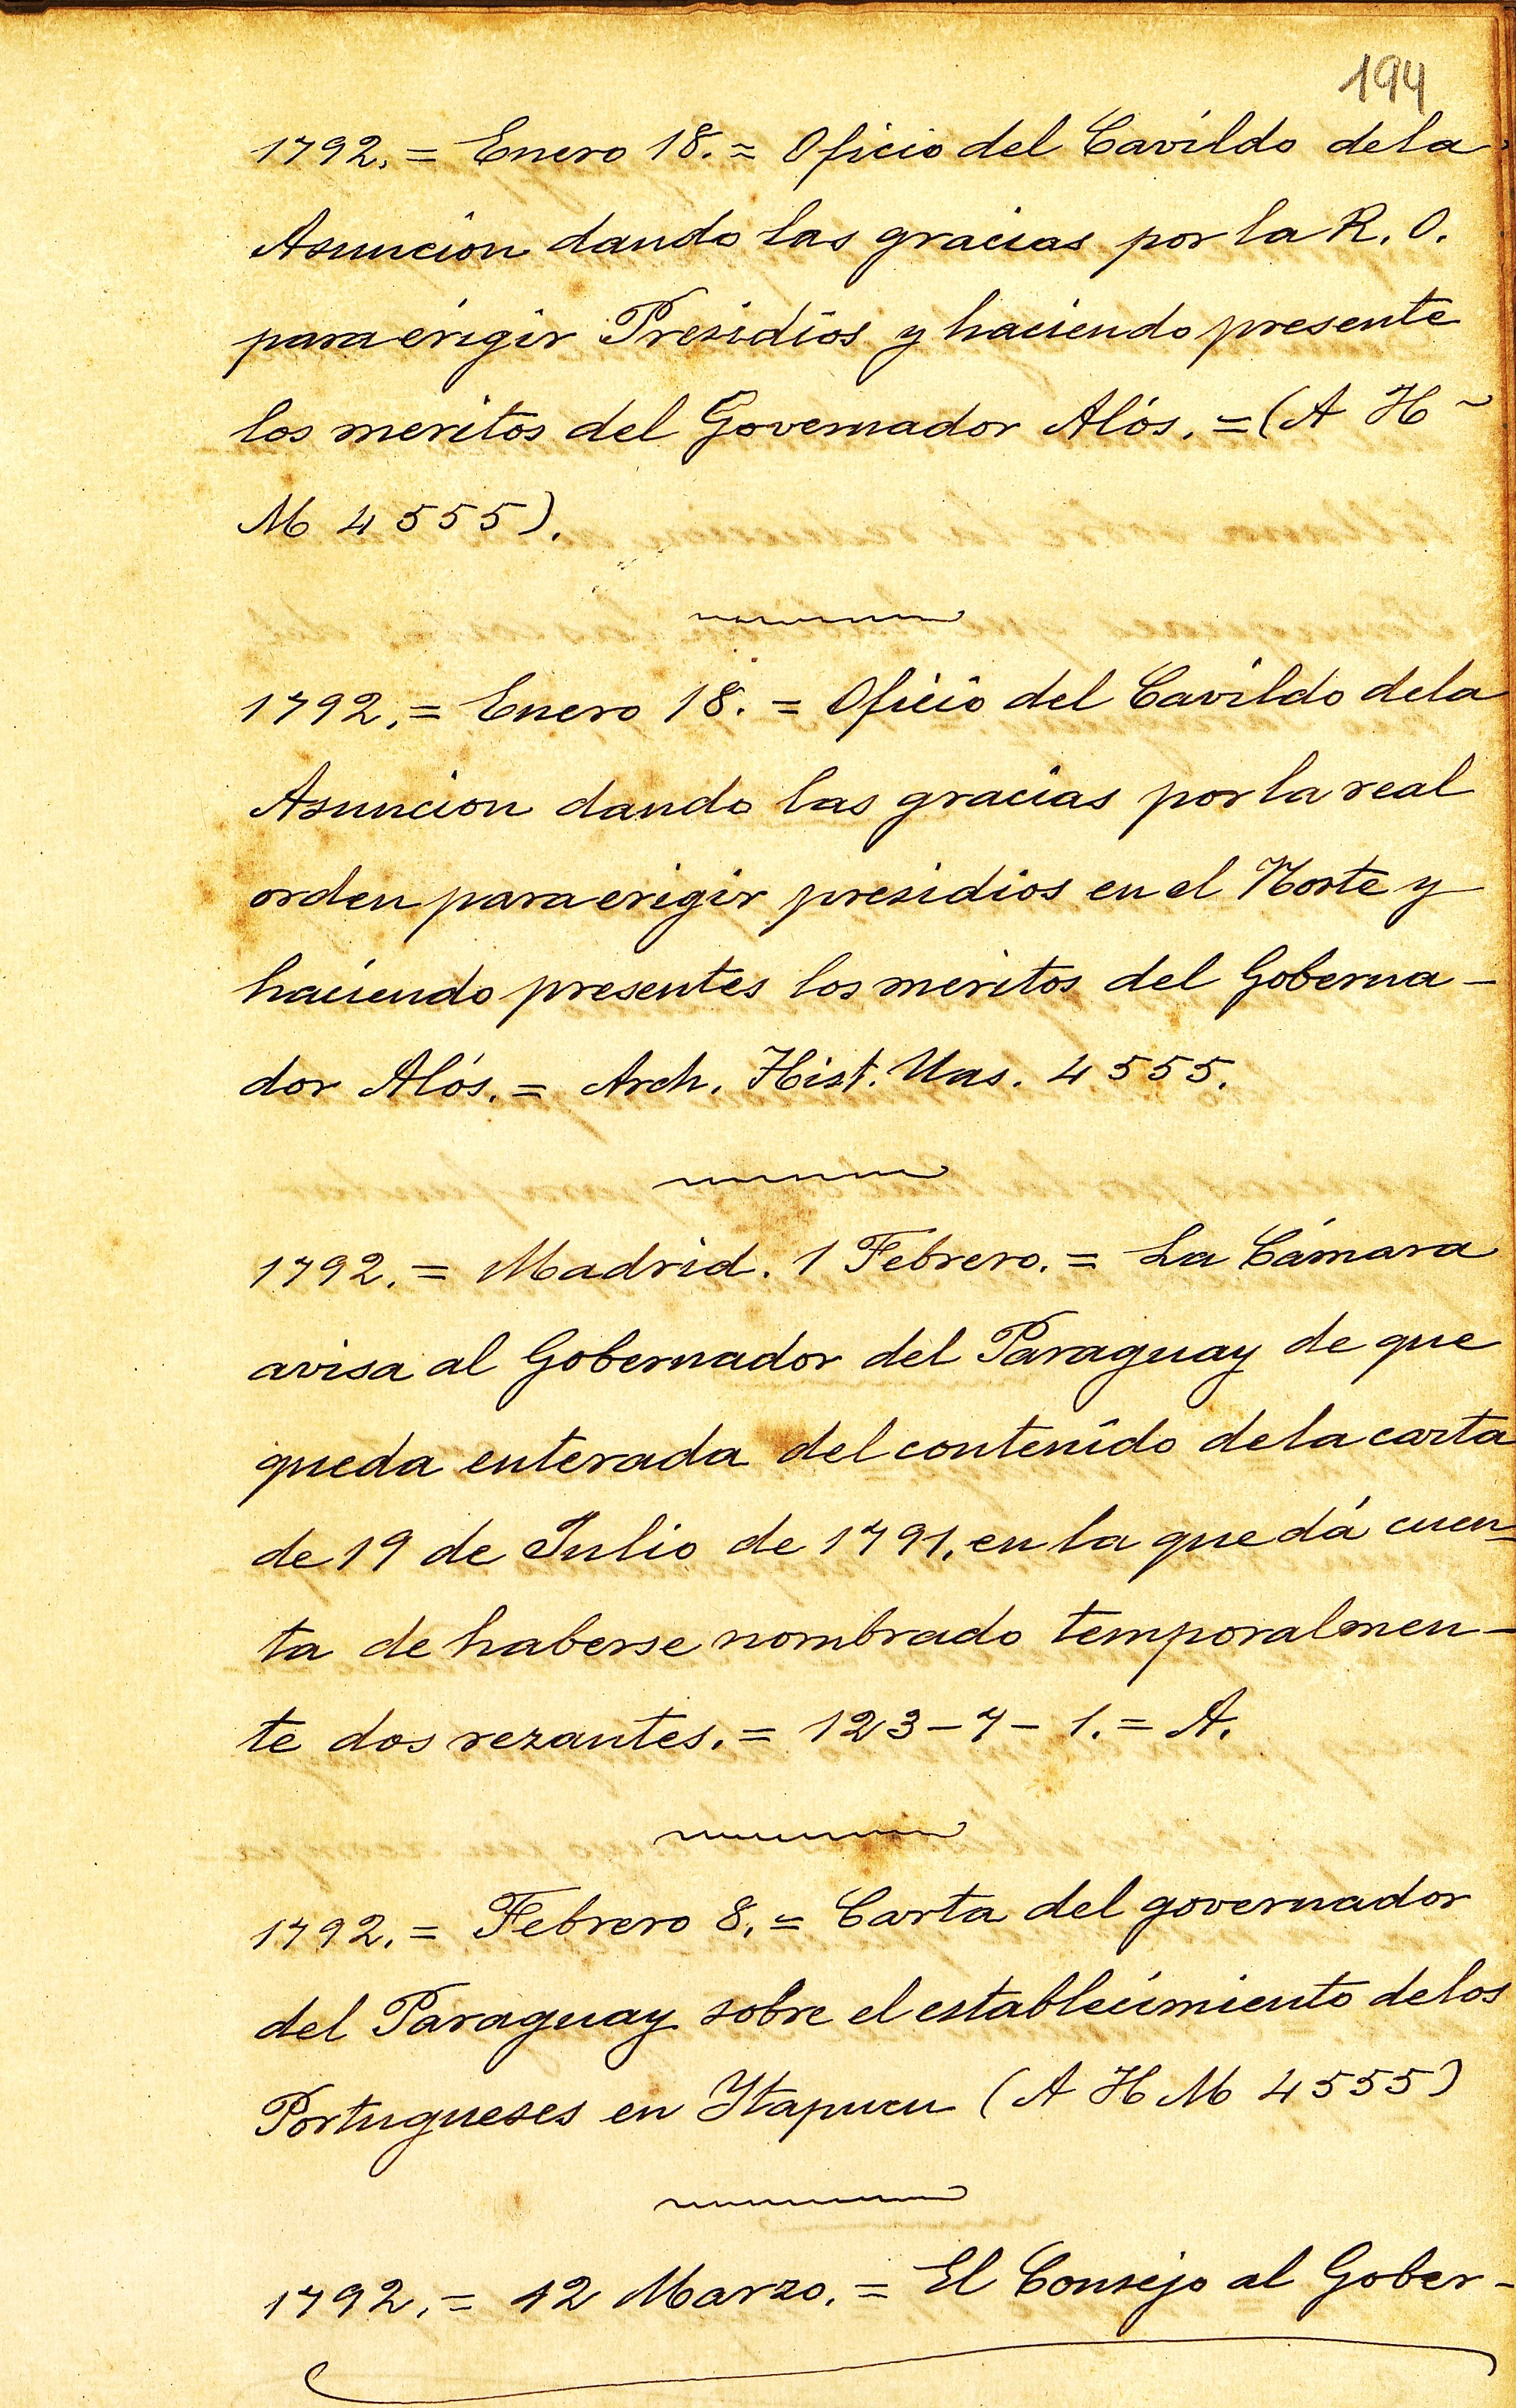 194
1792. = Enero 18. = Oficio del Cavildo dela
Asuncion dando las gracias por la R. O.
para erigir Presidios y haciendo presente
los meritos del Governador Alós. = (A H
M 4555).
1792. = Enero 18. = Oficio del Cavildo dela
Asuncion dando las gracias por la real
orden para erigir presidios en el Norte y
haciendo presentes los meritos del Goberna-
dor Alós. = Arch. Hist. Mas. 4555.
1792. = Madrid. 1 Febrero. = La Cámara
avisa al Gobernador del Paraguay de que
queda enterada del contenido de la carta
de 19 de Julio de 1791, en la que dá cuen-
ta de haberse nombrado temporalmen-
te dos rezantes. = 123-7-1. = A.
1792. = Febrero 8. = Carta del governador
del Paraguay sobre el establecimiento de los
Portugueses en Ytapucu (A H M 4555)
1792. = 12 Marzo. = El Consejo al Gober-